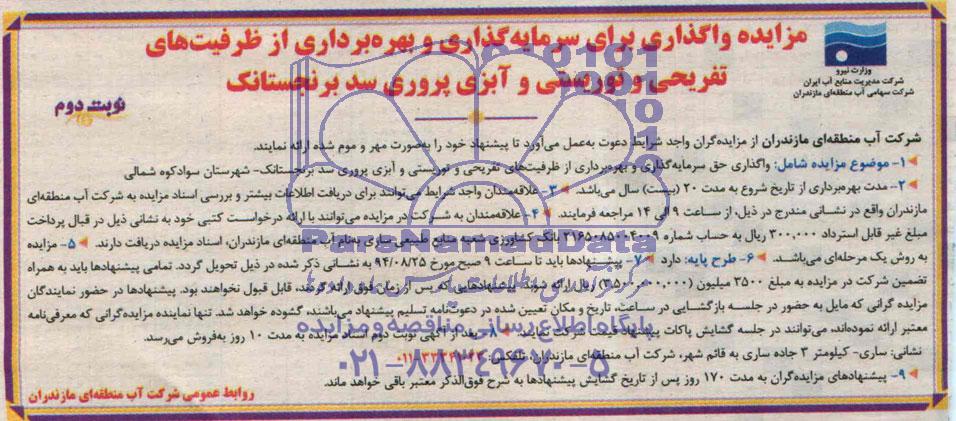 مزایده واگذاری برای سرمایه‌گذاری و بهره‌برداری از ظرفیت‌های
تفریحی و توریستی و آبزی پروری سد برنجستانک
وزارت نیرو
شرکت مدیریت منابع آب ایران
شرکت سهامی آب منطقه‌ای مازندران
نوبت دوم
شرکت آب منطقه‌ای مازندران از مزایده‌گران واجد شرایط دعوت به‌عمل می‌آورد تا پیشنهاد خود را به‌صورت مهر و موم شده ارائه نمایند.
۱- موضوع مزایده شامل: واگذاری حق سرمایه‌گذاری و بهره‌برداری از ظرفیت‌های تفریحی و توریستی و آبزی پروری سد برنجستانک- شهرستان سوادکوه شمالی
۲- مدت بهره‌برداری از تاریخ شروع به مدت ۲۰ (بیست) سال می‌باشد. ۳- علاقه‌مندان واجد شرایط می‌توانند برای دریافت اطلاعات بیشتر و بررسی اسناد مزایده به شرکت آب منطقه‌ای
مازندران واقع در نشانی مندرج در ذیل، از ساعت ۹ الی ۱۴ مراجعه فرمایند. ۴- علاقه‌مندان به شرکت در مزایده می‌توانند با ارائه درخواست کتبی خود به نشانی ذیل در قبال پرداخت
مبلغ غیر قابل استرداد ۳۰۰,۰۰۰ ریال به حساب شماره بانک کشاورزی شعبه منابع طبیعی ساری به‌نام آب منطقه‌ای مازندران، اسناد مزایده دریافت دارند. ۵- مزایده
به روش یک مرحله‌ای می‌باشد. ۶- طرح پایه: دارد ۷- پیشنهادها باید تا ساعت ۹ صبح مورخ ۹۴/۰۸/۲۵ به نشانی ذکر شده در ذیل تحویل گردد. تمامی پیشنهادها باید به همراه
تضمین شرکت در مزایده به مبلغ ۳۵۰۰ میلیون (۳,۵۰۰,۰۰۰,۰۰۰) ریال ارائه شوند. پیشنهادهایی که پس از زمان فوق ارائه گردند، قابل قبول نخواهند بود. پیشنهادها در حضور نمایندگان
مزایده گرانی که مایل به حضور در جلسه بازگشایی در ساعت، تاریخ و مکان تعیین شده در دعوت‌نامه تسلیم پیشنهاد می‌باشند، گشوده خواهد شد. تنها نماینده مزایده‌گرانی که معرفی‌نامه
معتبر ارائه نموده‌اند، می‌توانند در جلسه گشایش پاکات پیشنهاد قیمت شرکت نمایند. ۸- بعد از آگهی نوبت دوم اسناد مزایده به مدت ۱۰ روز به‌فروش می‌رسد.
نشانی: ساری- کیلومتر ۳ جاده ساری به قائم شهر، شرکت آب منطقه‌ای مازندران، تلفکس:
۹- پیشنهادهای مزایده‌گران به مدت ۱۷۰ روز پس از تاریخ گشایش پیشنهادها به شرح فوق‌الذکر معتبر باقی خواهد ماند.
روابط عمومی شرکت آب منطقه‌ای مازندران
ParsNamadData
پایگاه اطلاع رسانی مناقصه و مزایده
۰۲۱-۸۸۳۴۹۶۷۰-۵